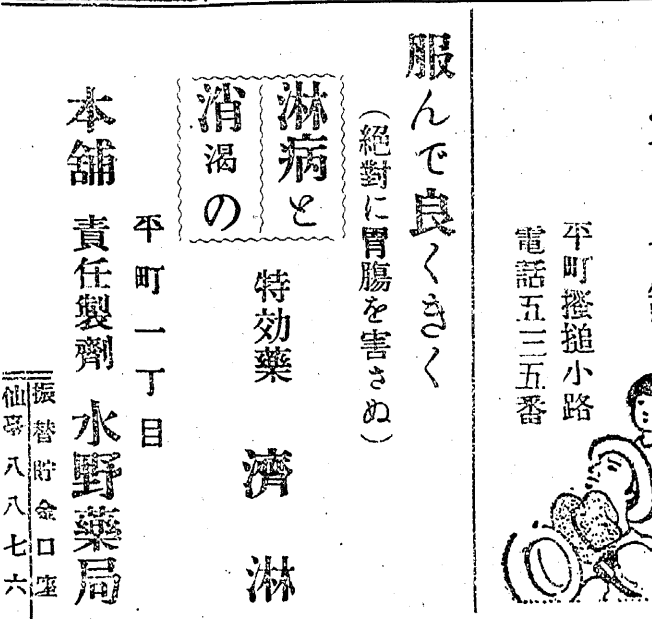 平町掻槌小路
電話五三五番
服んで良くきく
(絶對に胃腸を害さぬ)
淋病と
消渇の
特効藥 濟淋
平町一丁目
本舖 責任製劑 水野藥局
振替貯金口座
仙臺八八七六